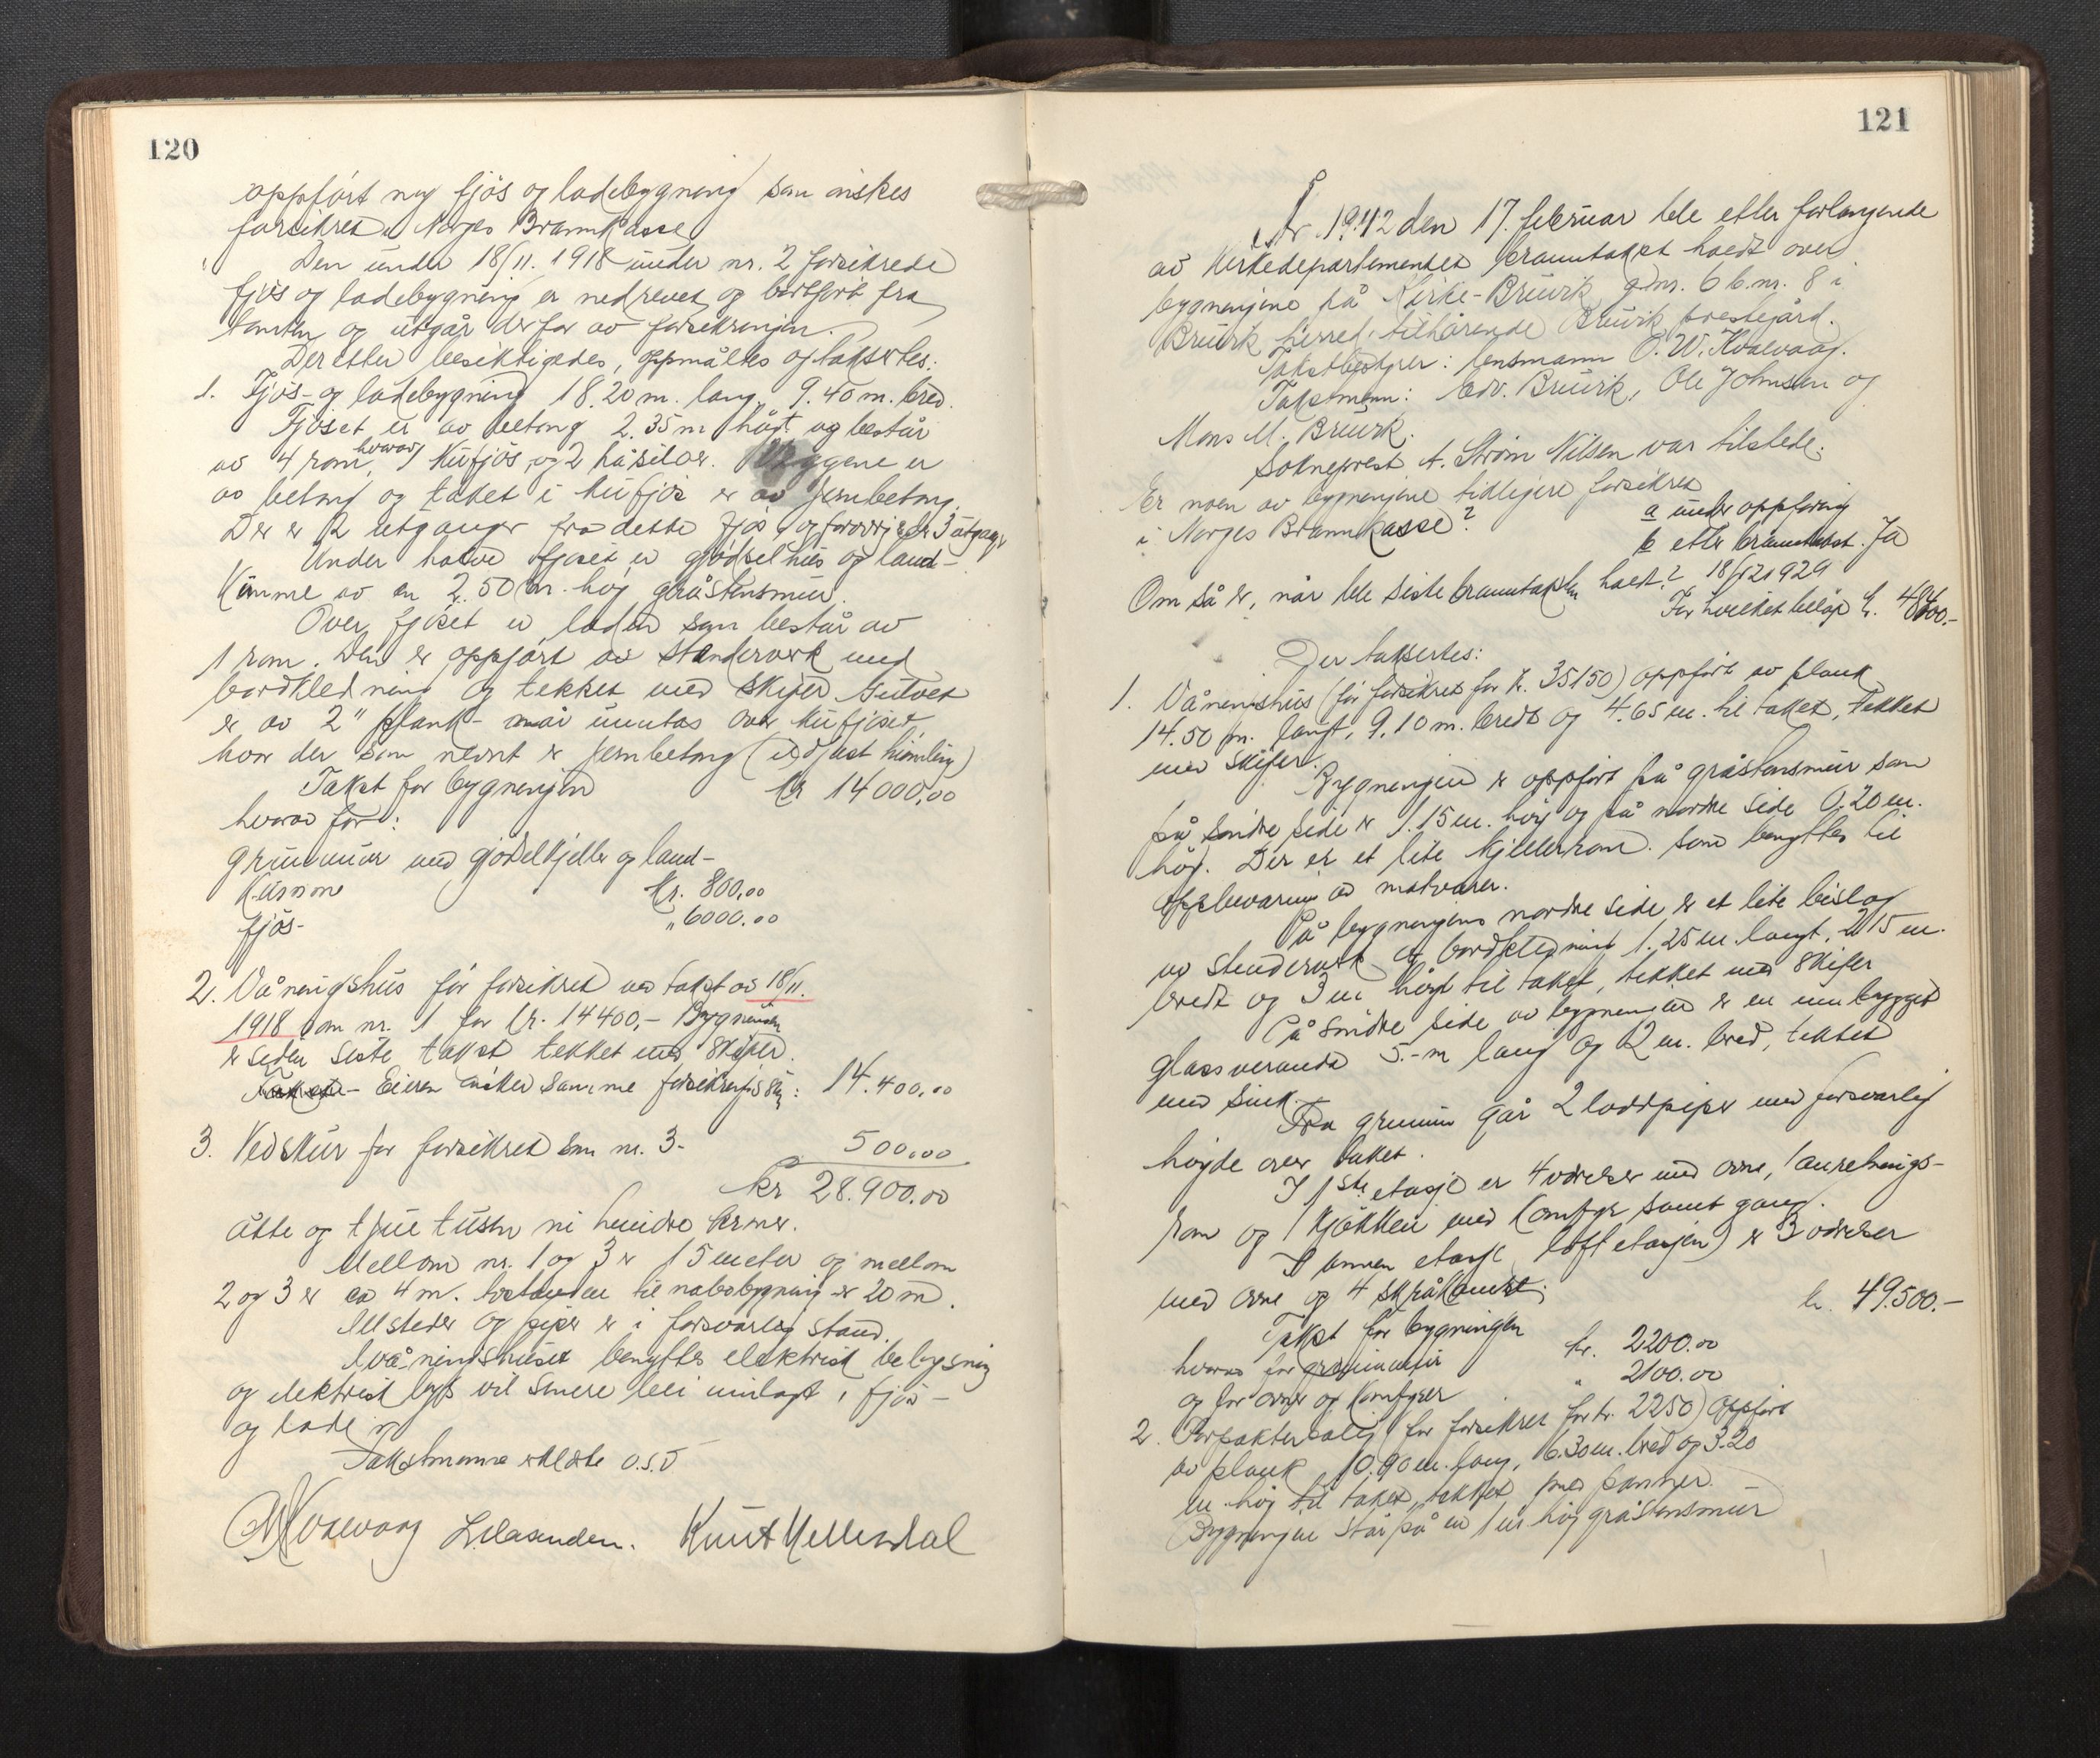 120
oppført ny fjøs og ladebygning som ønskes
forsikret i Norges Brannkasse
Den under 18/11. 1918 under nr. 2 forsikrede
fjøs og ladebygning er nedrevet og bortført fra
tomten og utgår derfor av forsikringen.
Deretter besiktigedes, oppmåltes og takseertes:
1. Fjøs- og ladebygning 18.20 m. lang, 9.40 m. bred.
Fjøset er av betong 2.35 m høgt og består
av 4 rom, hvorav 1 kufjøs, og 2 høsiloer. Veggene er
av betong og taket i kufjøs er av jernbetong.
Der er 2 utganger fra dette fjøs, og forøvrig er der 3 utganger
Under halve fjøset er gjødselhus og land-
kumme av en 2.50 m. høg gråstensmur.
Over fjøset er laden som består av
1 rom. Den er oppført av stenderverk med
bordkledning og tekket med skifer. Gulvet
er av 2" plank - når unntas over kufjøset,
hvor der som nevnt er jernbetong
Takst for bygningen kr 14000,00
hvorav for:
grunnmur med gjødselkjeller og land-
kumme kr. 800,00
fjøs- " 6000.00
2. Våningshus før forsikret ved takst av 18/11.
1918 som nr. 1 for kr. 14400,- Bygningen
er siden siste takst tekket med skifer.
Eieren ønsker samme forsikringssum: 14.400,00
3. Vedskur før forsikret som nr. 3- 500,00
kr 28.900.00
åtte og tjue tusen ni hundre kroner.
Mellom nr. 1 og 3 er 15 meter og mellom
2 og 3 er ca 4 m. Avstanden til nabobygning er 20 m.
Ildsteder og piper er i forsvarlig stand.
I våningshuset benyttes elektrisk belysning
og elektrisk lys vil senere bli innlagt i fjøs-
og lade n
Takstmennene erklærte o.s.v
Kvalvaag Knut Mellesdal
121
År 1942 den 17. februar ble etter forlangende
av Kirkedepartementet branntakst holdt over
bygningene på Kirke-Bruvik, g.nr. 6 b.nr. 8 i
Bruvik herred, tilhørende Bruvik prestegård.
Takstbestyrer: lensmann O. W. Kvalvaag.
Takstmenn: Edv. Bruvik, Ole Johnsen og
Mons M. Bruvik.
Sokneprest A. Strøm Nilsen var tilstede.
Er noen av bygningene tidligere forsikret
i Norges Brannkasse? a under oppføring
b etter branntakst. Ja
Om så er, når ble siste branntakst holdt? 18/12 1929
For hvilket beløp kr. 48400.-
Der takseertes:
1. Våningshus (før forsikret for kr. 35150) oppført av plank
14.50 m. langt, 9.10 m. bredt og 4.65 m. til taket, tekket
med skifer.
Bygningen er oppført på gråstensmur som
på søndre side er 1.15 m. høg og på nordre side 0.20 m.
høg. Der er et lite kjellerrom som benyttes til
oppbevaring av matvarer.
På bygningens nordre side er et lite bislag
av stenderverk og bordkledning 1.25 m. langt, 2.15 m.
bredt og 3 m høgt til taket, tekket med skifer
På søndre side av bygningen er en innbygget
glassveranda 5.- m lang og 2 m. bred, tekket
med sink.
Fra grunnen går 2 loddpiper med forsvarlig
høgde over taket.
I 1ste etasje er 4 værelser med ovne, 1 anretnings-
rom og 1 kjøkken med komfyr samt gang.
I annen etasje (loftetasjen) er 3 værelser
med ovne og 4 skråkammers.
Takst for bygningen kr. 49.500.-
hvorav for grunnmur kr. 2200.00
og for ovner og komfyrer " 2100.00
2. Forpakterbolig (før forsikret for kr. 2250) oppført
av plank 10.90 m. lang, 6.30 m. bred og 3.20
m. høg til taket, tekket med panner.
Bygningen står på en 1 m. høg gråstensmur